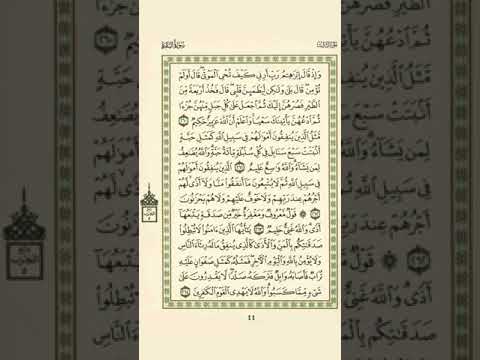 الجزء الثالث
سورة البقرة
وَإِذْ قَالَ إِبْرَٰهِـۧمُ رَبِّ أَرِنِى كَيْفَ تُحْىِ ٱلْمَوْتَىٰ قَالَ أَوَلَمْ
تُؤْمِن قَالَ بَلَىٰ وَلَٰكِن لِّيَطْمَئِنَّ قَلْبِى قَالَ فَخُذْ أَرْبَعَةً مِّنَ
ٱلطَّيْرِ فَصُرْهُنَّ إِلَيْكَ ثُمَّ ٱجْعَلْ عَلَىٰ كُلِّ جَبَلٍ مِّنْهُنَّ جُزْءًا
ثُمَّ ٱدْعُهُنَّ يَأْتِينَكَ سَعْيًا وَٱعْلَمْ أَنَّ ٱللَّهَ عَزِيزٌ حَكِيمٌ ٢٦٠
مَّثَلُ ٱلَّذِينَ يُنفِقُونَ أَمْوَٰلَهُمْ فِى سَبِيلِ ٱللَّهِ كَمَثَلِ حَبَّةٍ
أَنۢبَتَتْ سَبْعَ سَنَابِلَ فِى كُلِّ سُنۢبُلَةٍ مِّا۟ئَةُ حَبَّةٍ وَٱللَّهُ يُضَٰعِفُ
لِمَن يَشَآءُ وَٱللَّهُ وَٰسِعٌ عَلِيمٌ ٢٦١ ٱلَّذِينَ يُنفِقُونَ أَمْوَٰلَهُمْ
فِى سَبِيلِ ٱللَّهِ ثُمَّ لَا يُتْبِعُونَ مَآ أَنفَقُوا۟ مَنًّا وَلَآ أَذًى لَّهُمْ
أَجْرُهُمْ عِندَ رَبِّهِمْ وَلَا خَوْفٌ عَلَيْهِمْ وَلَا هُمْ يَحْزَنُونَ
٢٦٢ قَوْلٌ مَّعْرُوفٌ وَمَغْفِرَةٌ خَيْرٌ مِّن صَدَقَةٍ يَتْبَعُهَآ
أَذًى وَٱللَّهُ غَنِىٌّ حَلِيمٌ ٢٦٣ يَٰٓأَيُّهَا ٱلَّذِينَ ءَامَنُوا۟ لَا تُبْطِلُوا۟
صَدَقَٰتِكُم بِٱلْمَنِّ وَٱلْأَذَىٰ كَٱلَّذِى يُنفِقُ مَالَهُۥ رِئَآءَ ٱلنَّاسِ
وَلَا يُؤْمِنُ بِٱللَّهِ وَٱلْيَوْمِ ٱلْءَاخِرِ فَمَثَلُهُۥ كَمَثَلِ صَفْوَانٍ عَلَيْهِ
تُرَابٌ فَأَصَابَهُۥ وَابِلٌ فَتَرَكَهُۥ صَلْدًا لَّا يَقْدِرُونَ عَلَىٰ
شَىْءٍ مِّمَّا كَسَبُوا۟ وَٱللَّهُ لَا يَهْدِى ٱلْقَوْمَ ٱلْكَٰفِرِينَ ٢٦٤